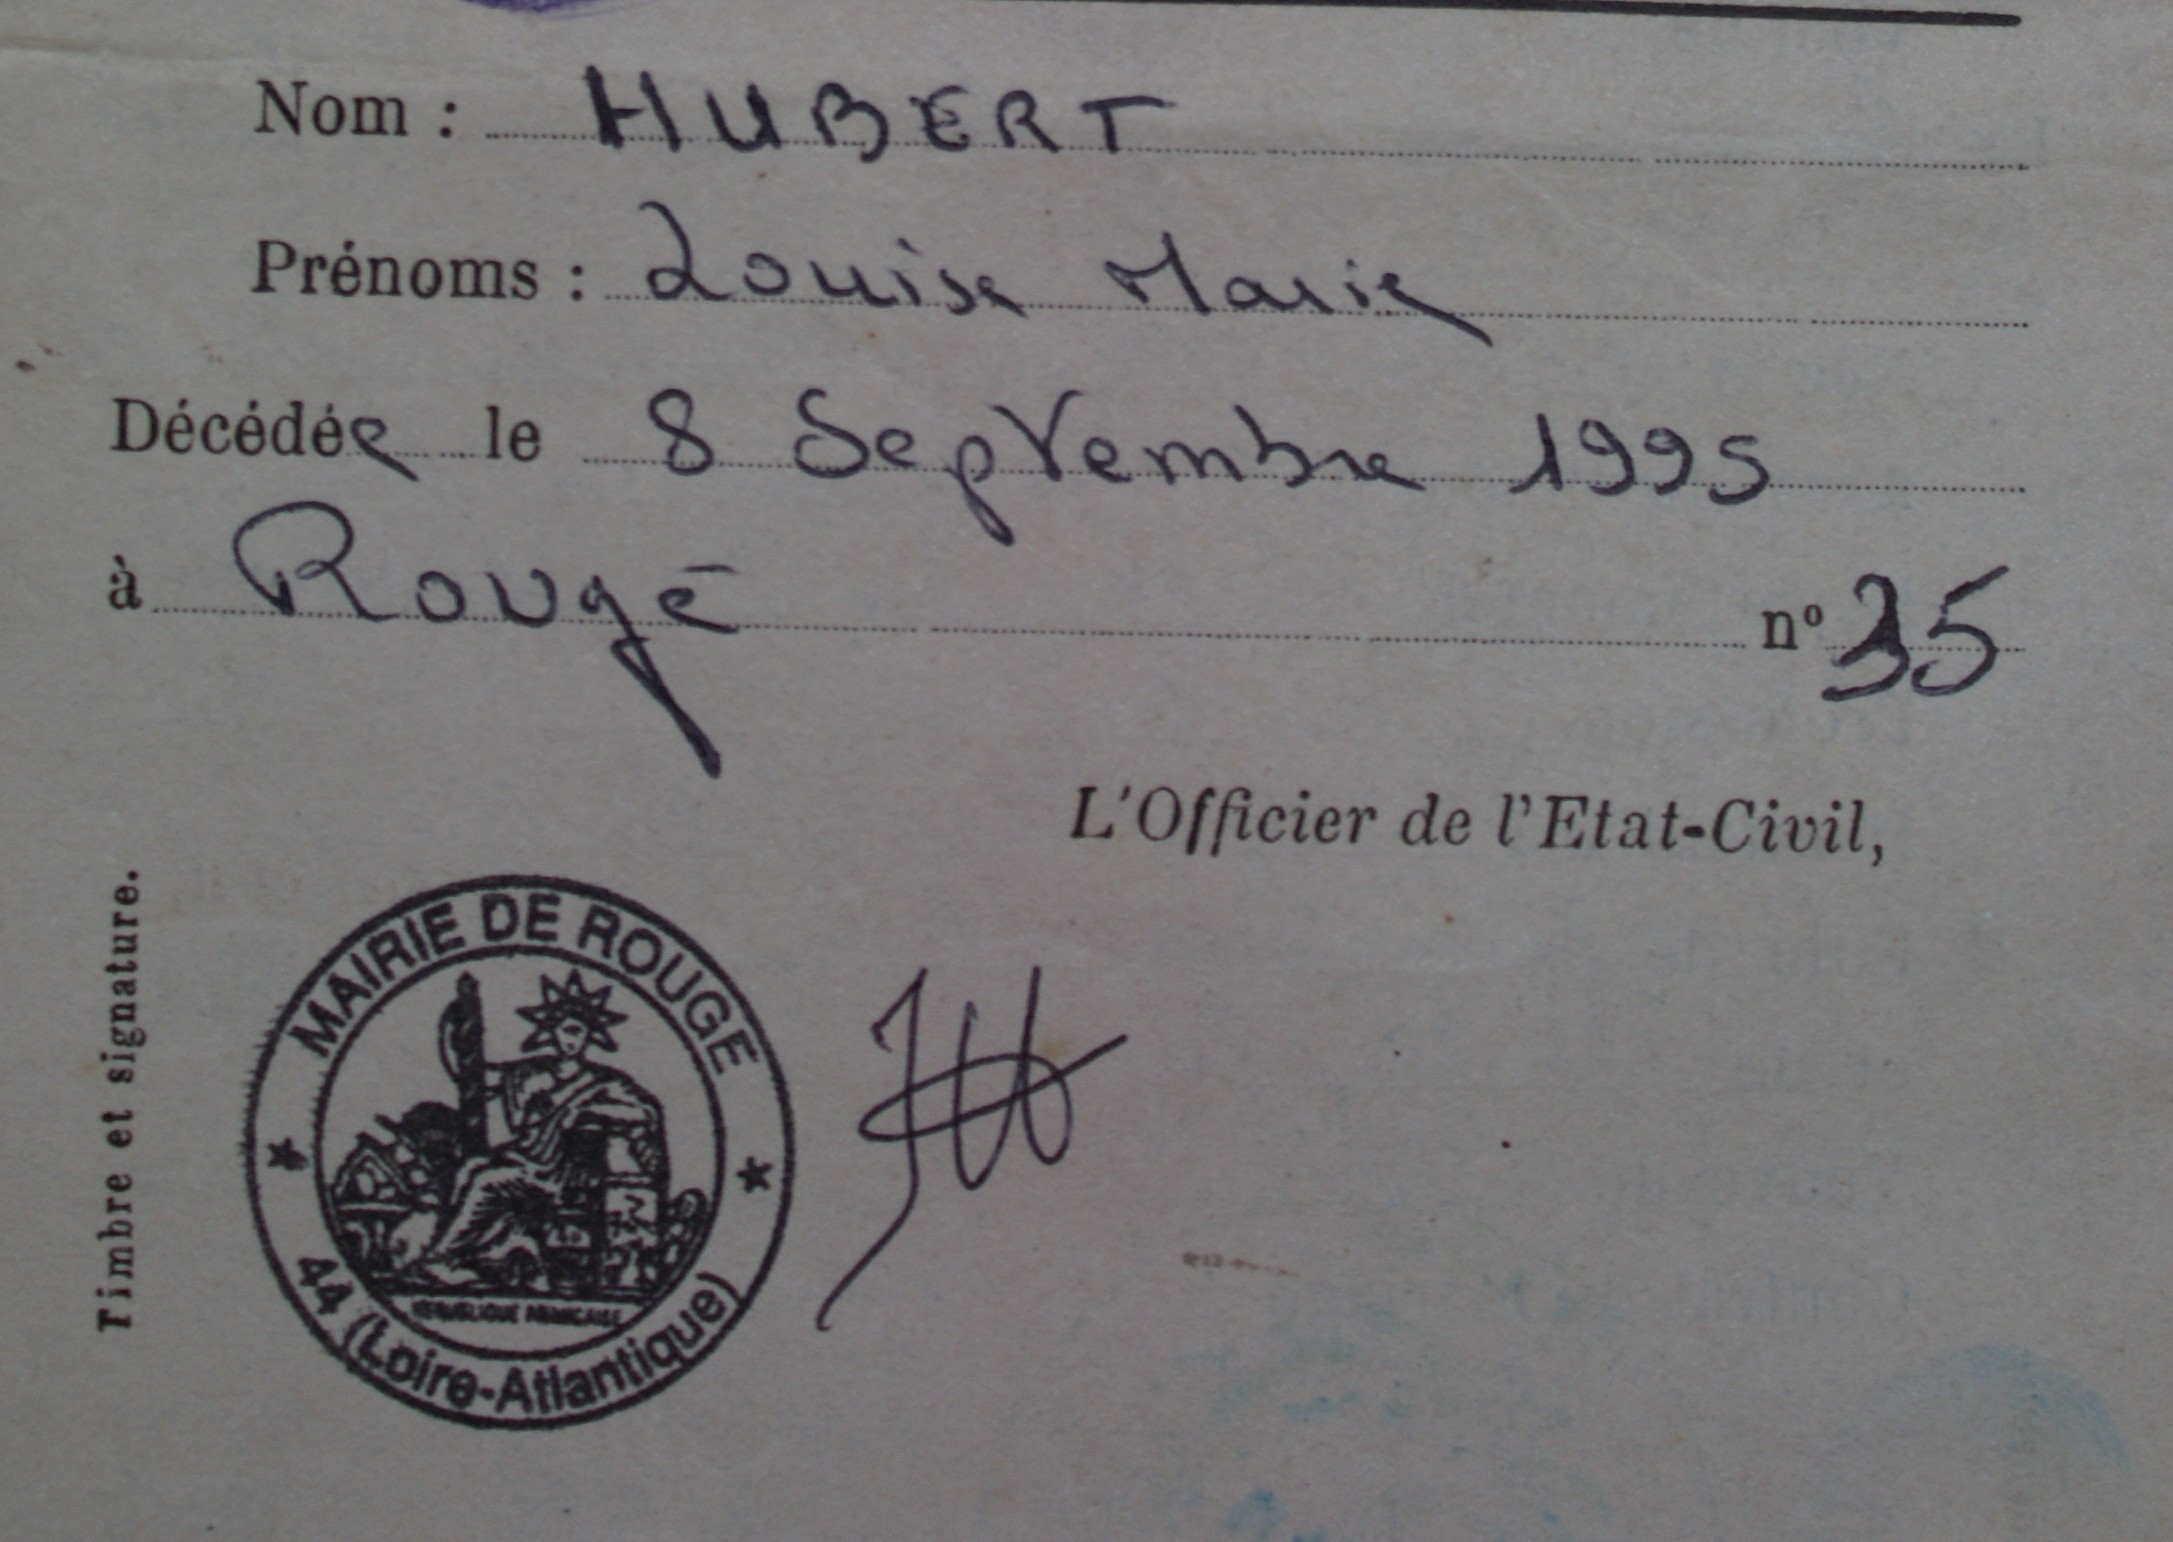 Nom : HUBERT
Prénoms : Louise Marie
Décédée le 8 Septembre 1995
à Rougé n° 35
L'Officier de l'Etat-Civil,
Timbre et signature.
MAIRIE DE ROUGE
REPUBLIQUE FRANCAISE
44 (Loire-Atlantique)